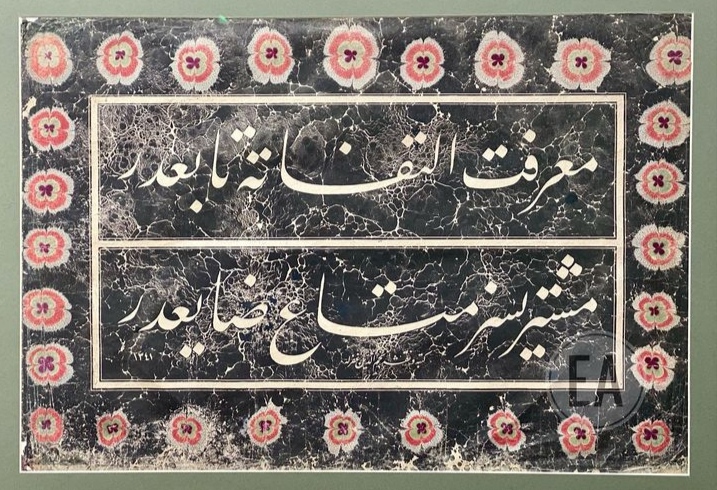 معرفت التفاته تابعدر
مشتریسز متاع ضایعدر
١٣٤١
EA